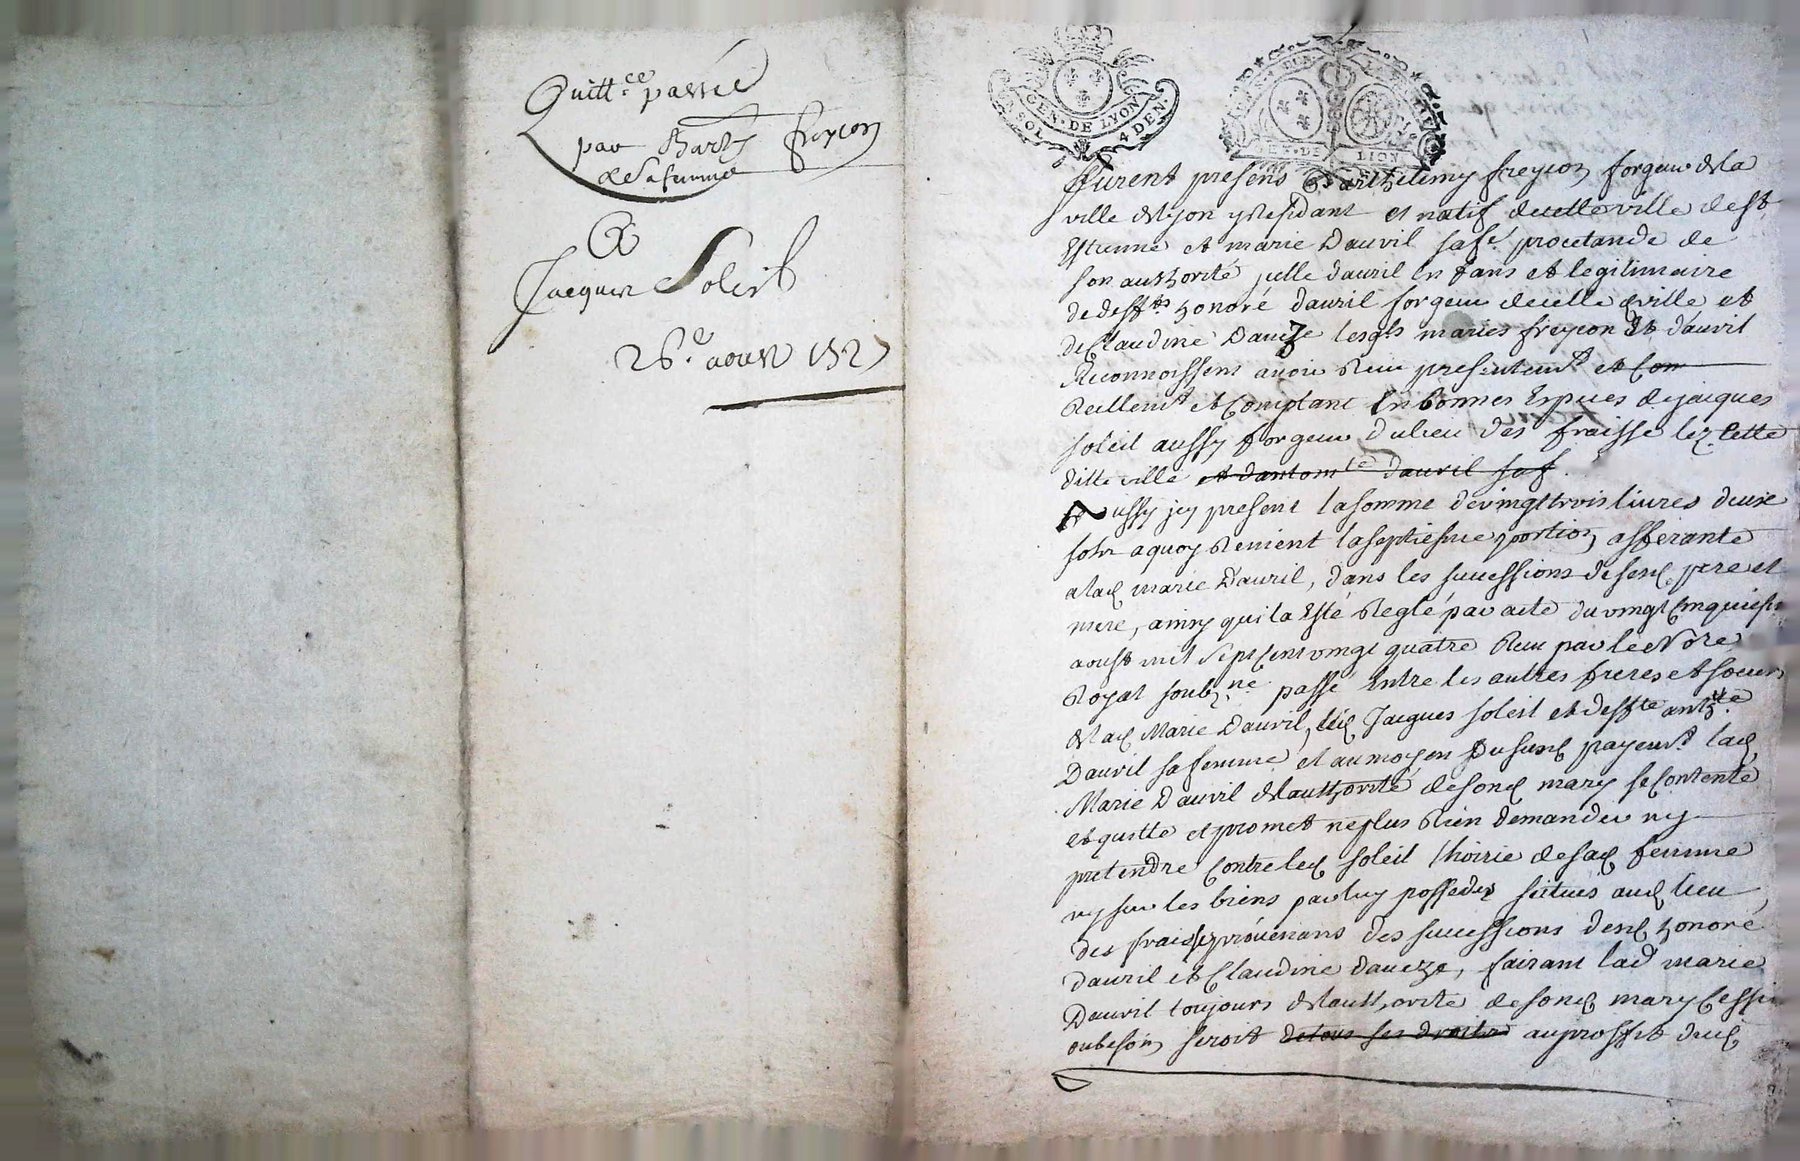 Quitt.ce passée
par Barth freycon
& Sa femme
A
Jacques Soleil
26.e aoust 1727
GEN. DE LYON
SOL 4 DEN.
GEN. DE LION
Furent presens Barthelemy freycon forgeur de la
ville de lyon y residant et natif de cette ville de st
Estienne et marie Dauril sa fe. procedande de
son authorité jcelle dauril Enfans et legitimaire
de deffts honoré dauril forgeur de cette ville et
de Claudine Daveze lesqls maries freycon et dauril
Reconnoissent avoir Receu presentemt et Com
Reellemt et Comptant En bonnes Especes de jacques
soleil aussy forgeur du lieu des fraisse lez Cette
ditte ville et dantointe dauril sa f.
Aussy jcy present la somme de vingt trois livres deux
sols a quoy Revient la septiesme portion afferante
a lad marie Dauril, dans les successions de sesd pere et
mere, ainsy quil a Esté Reglé par acte du vingt Cinquiesm
aoust mil sept Cent vingt quatre Receu par le Nore
Royal soubz.né passé Entre les autres freres et soeurs
de lad Marie Dauril, led Jacques soleil et deffte anthte
Dauril sa femme et au moyen du susd payemt lad
Marie Dauril de lauthorité de sond mary se Contente
et quitte et promet ne plus Rien demander ny
pretendre Contre led soleil lhoirie de sad femme
ny sur les biens par luy possedes scitues aud lieu
des fraisse provenans des successions desd honoré
dauril et Claudine daveze, faisant lad marie
Dauril toujours de lauthorité de sond mary Cession
ou besoin seroit de tous ses droits au proffit dud